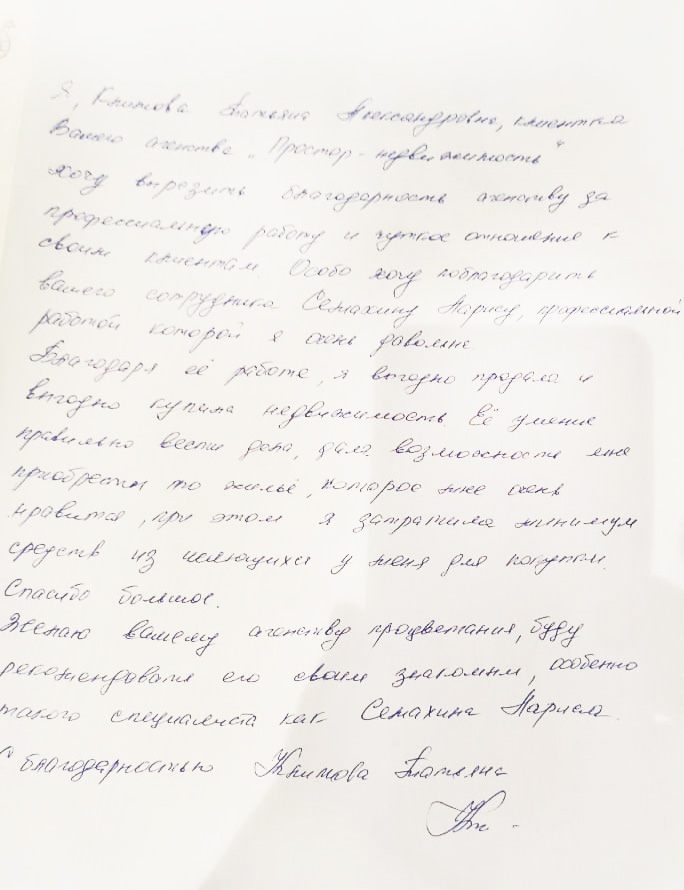 Я, Климова Татьяна Александровна, клиентка
Вашего агенства „Простор-недвижимость"
хочу вырезить благодарность агенству за
профессиальную работу и чуткое отношение к
своим клиентам. Особо хочу поблагодарить
вашего сотрудника Семахину Ларису, профессиальной
работой которой я очень давольна
Благодаря её работе, я выгодно продала и
выгодно купила недвижимость. Её умение
правильно вести дела, дала возможность мне
приобрести то жильё, которое мне очень
нравится, при этом я затратила минимум
средств из имеющихся у меня для покупки.
Спасибо большое.
Желаю вашему агенству процветания, буду
рекомендавать его своим знакомым, особенно
такого специалиста как Семахина Лариса.
С благодарностью Климова Татьяна